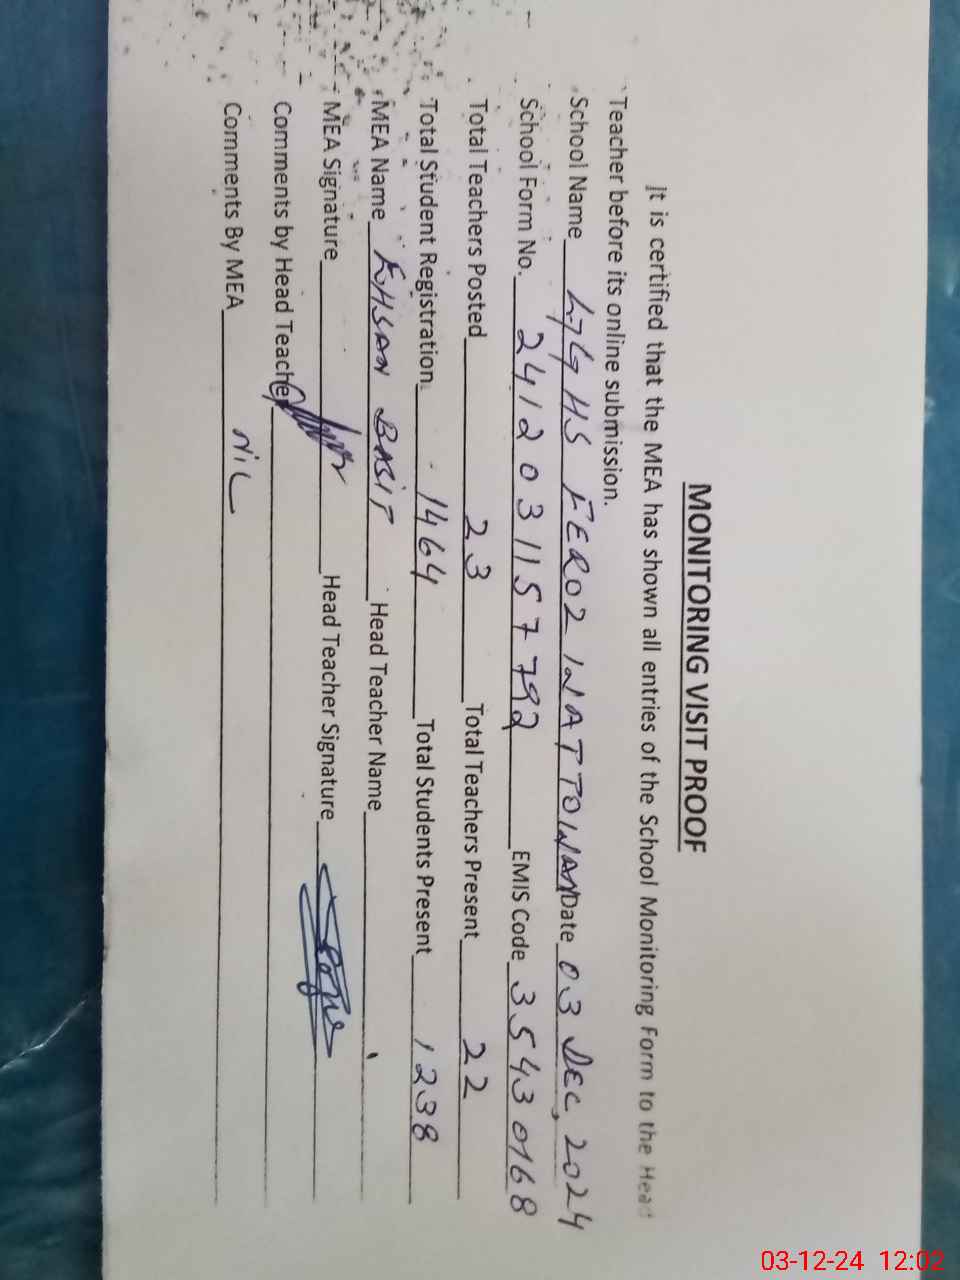 MONITORING VISIT PROOF
It is certified that the MEA has shown all entries of the School Monitoring Form to the Head
Teacher before its online submission.
School Name HS FEROZ WATTOWAN Date 03 DEC, 2024
School Form No. 2412031157792 EMIS Code 35430168
Total Teachers Posted 23 Total Teachers Present 22
Total Student Registration 1464 Total Students Present 1238
MEA Name EHSAN BASIT Head Teacher Name
MEA Signature Head Teacher Signature
Comments by Head Teacher
Comments By MEA NiL
03-12-24 12:02